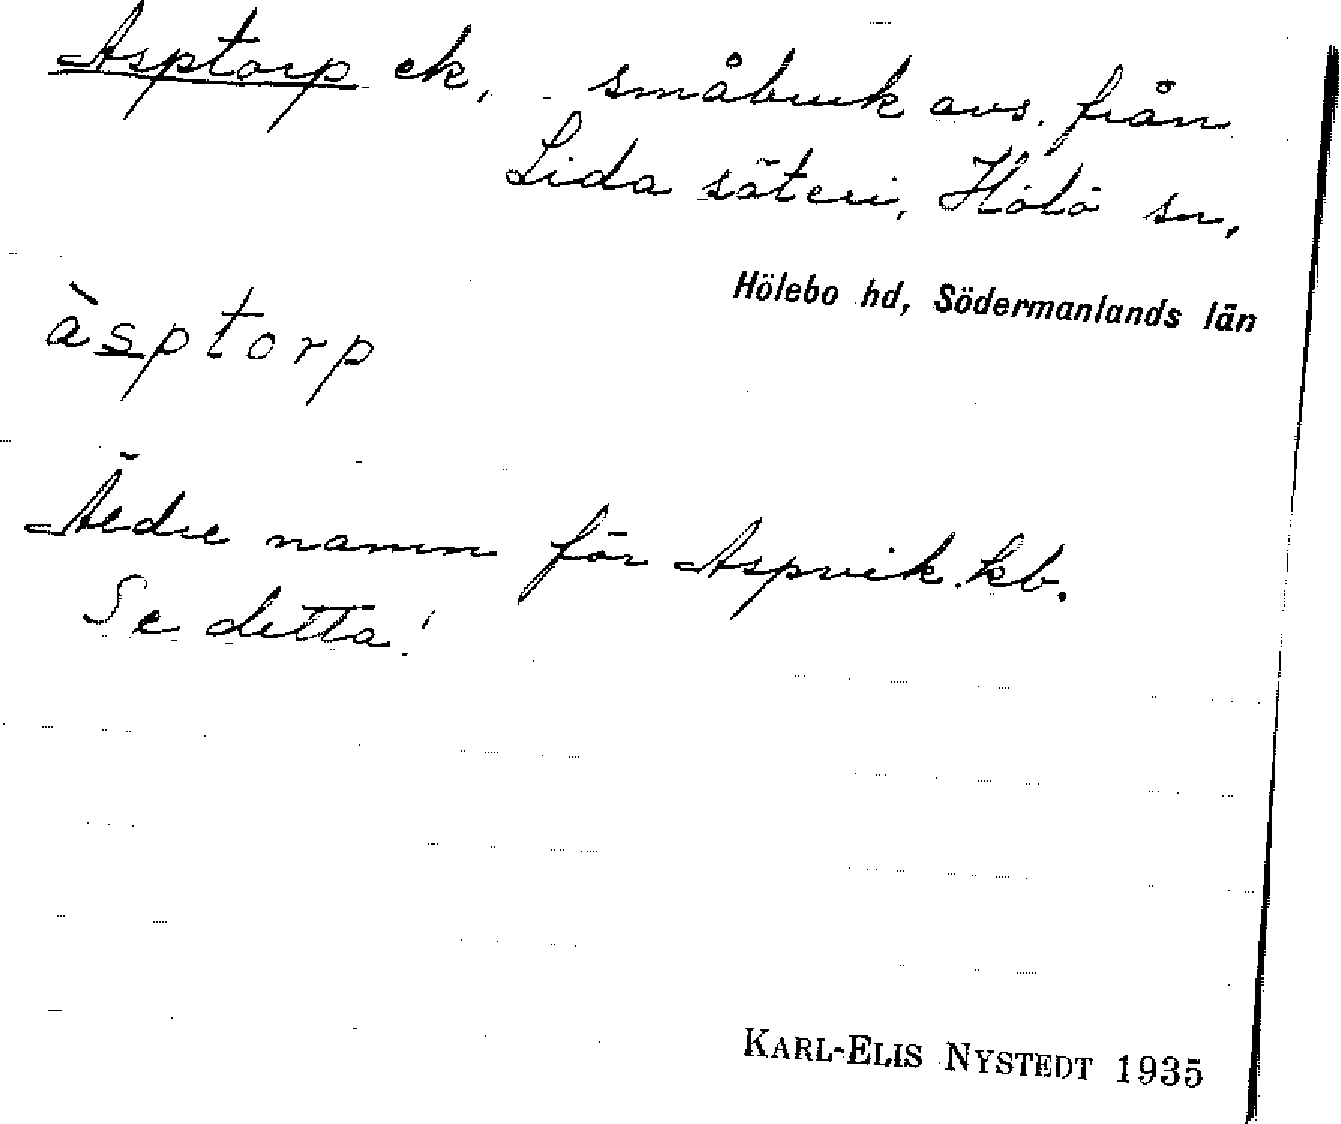 Asptorp ek, småbruk avs. från
Lida säteri, Hölö sn,
Hölebo hd, Södermanlands län
àsptorp
Äldre namn för Aspvik kb.
Se detta!
KARL-ELIS NYSTEDT 1935